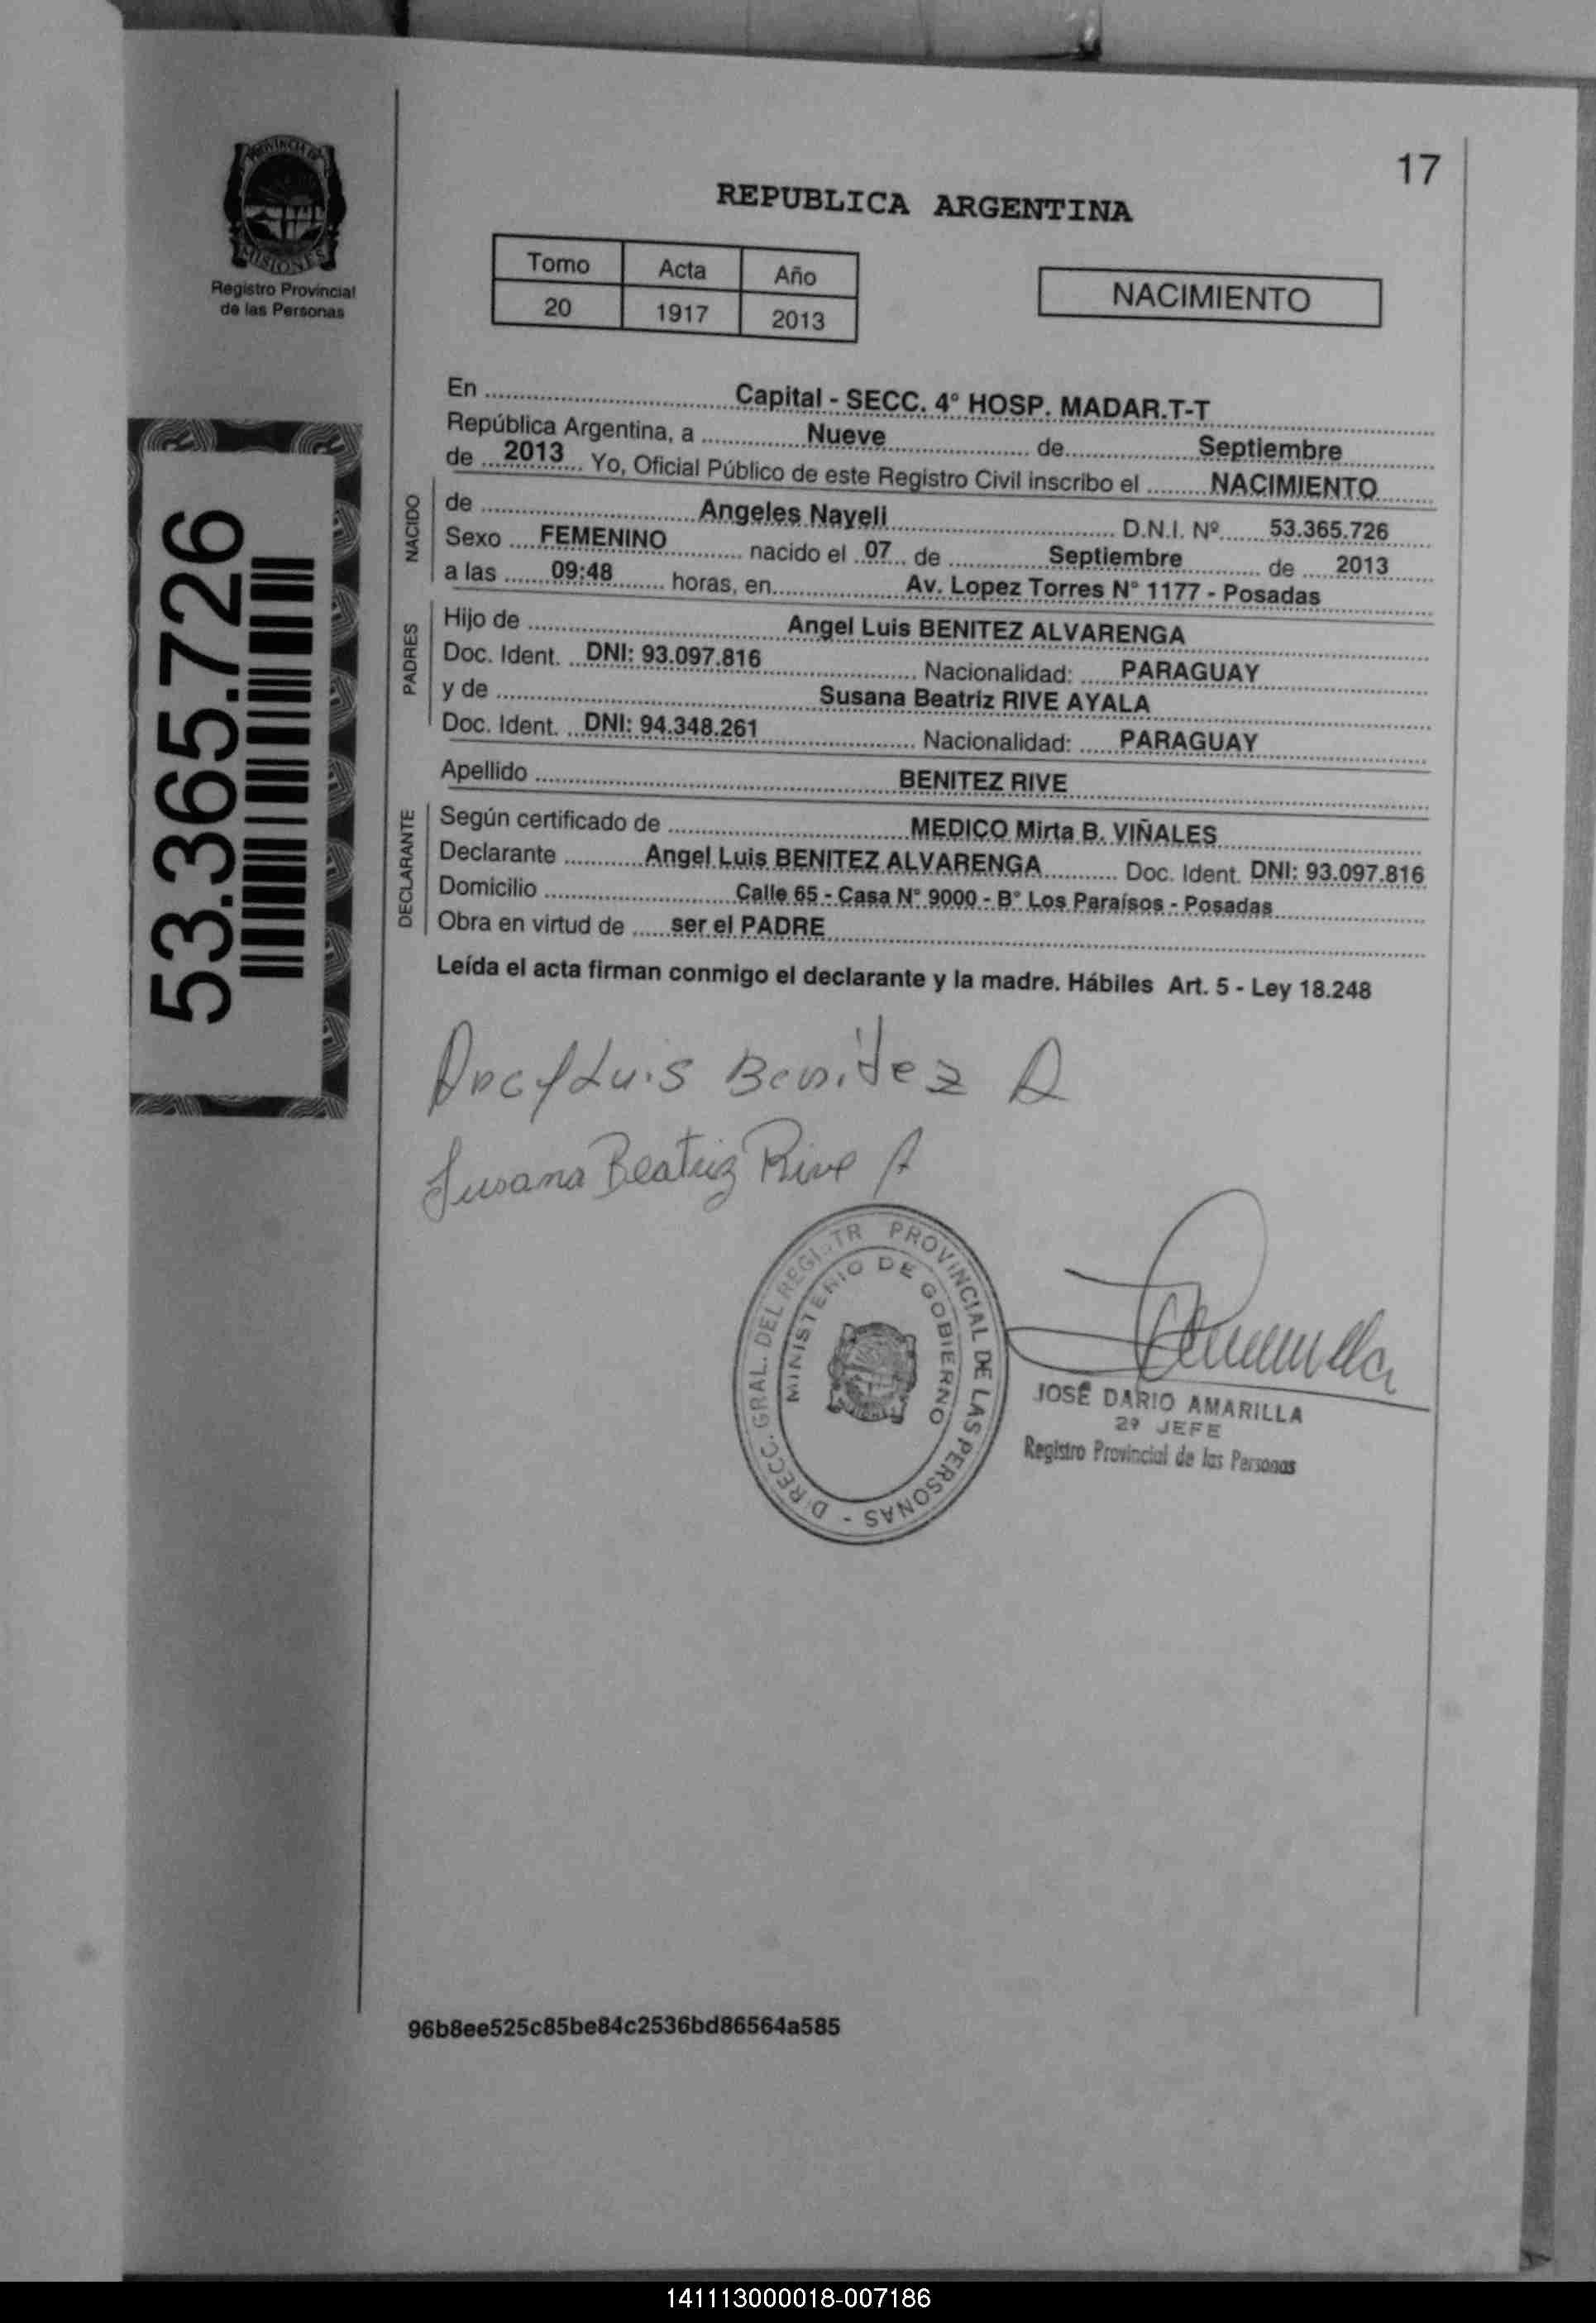 17
REPUBLICA ARGENTINA
PROVINCIA DE
MISIONES
Registro Provincial
de las Personas
Tomo Acta Año
20 1917 2013
NACIMIENTO
53.365.726
En Capital - SECC. 4° HOSP. MADAR.T-T
República Argentina, a Nueve de Septiembre
de 2013 Yo, Oficial Público de este Registro Civil inscribo el NACIMIENTO
NACIDO
de Angeles Nayeli D.N.I. Nº 53.365.726
Sexo FEMENINO nacido el 07 de Septiembre de 2013
a las 09:48 horas, en Av. Lopez Torres N° 1177 - Posadas
PADRES
Hijo de Angel Luis BENITEZ ALVARENGA
Doc. Ident. DNI: 93.097.816 Nacionalidad: PARAGUAY
y de Susana Beatriz RIVE AYALA
Doc. Ident. DNI: 94.348.261 Nacionalidad: PARAGUAY
Apellido BENITEZ RIVE
DECLARANTE
Según certificado de MEDICO Mirta B. VIÑALES
Declarante Angel Luis BENITEZ ALVARENGA Doc. Ident. DNI: 93.097.816
Domicilio Calle 65 - Casa N° 9000 - B° Los Paraísos - Posadas
Obra en virtud de ser el PADRE
Leída el acta firman conmigo el declarante y la madre. Hábiles Art. 5 - Ley 18.248
Luis Benitez A
Susana Beatriz Rive A
DIRECC. GRAL. DEL REGISTR PROVINCIAL DE LAS PERSONAS -
MINISTERIO DE GOBIERNO
JOSÉ DARIO AMARILLA
2º JEFE
Registro Provincial de las Personas
96b8ee525c85be84c2536bd86564a585
141113000018-007186